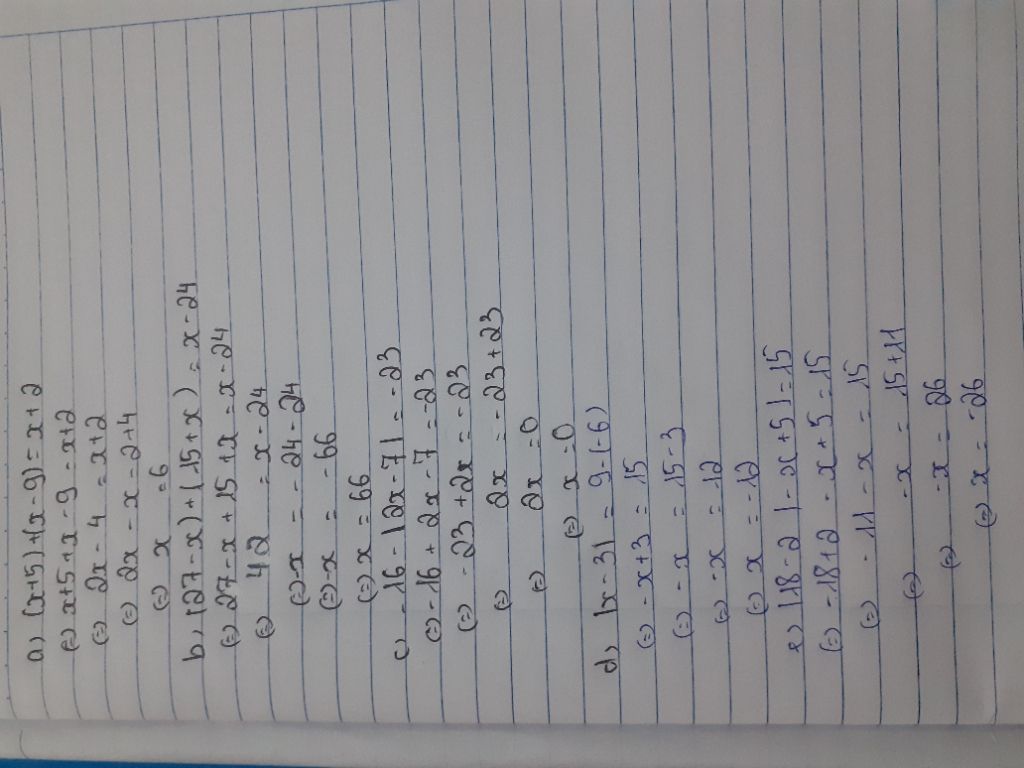 a, (x+5)+(x-9)=x+2
(=) x+5+x-9=x+2
(=) 2x-4=x+2
(=) 2x-x=2+4
(=) x=6
b, (27-x)+(15+x)=x-24
(=) 27-x+15+x=x-24
(=) 42=x-24
(=) -x=-24-24
(=) -x=-66
(=) x=66
c, -16-|2x-7|=-23
(=) -16+2x-7=-23
(=) -23+2x=-23
(=) 2x=-23+23
(=) 2x=0
(=) x=0
d, |x-3|=9-(-6)
(=) -x+3=15
(=) -x=15-3
(=) -x=12
(=) x=-12
e, |18-2|-x+5|=15
(=) -18+2-x+5=15
(=) -11-x=15
(=) -x=15+11
(=) -x=26
(=) x=-26